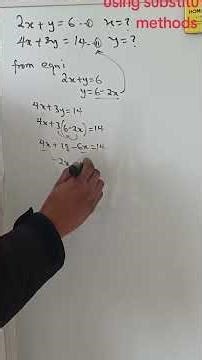 using substitu
methods
2x + y = 6 - ① x = ?
4x + 3y = 14 - ⑪ y = ?
from eqn:
2x + y = 6
y = 6 - 2x
4x + 3y = 14
4x + 3(6 - 2x) = 14
4x + 18 - 6x = 14
-2x